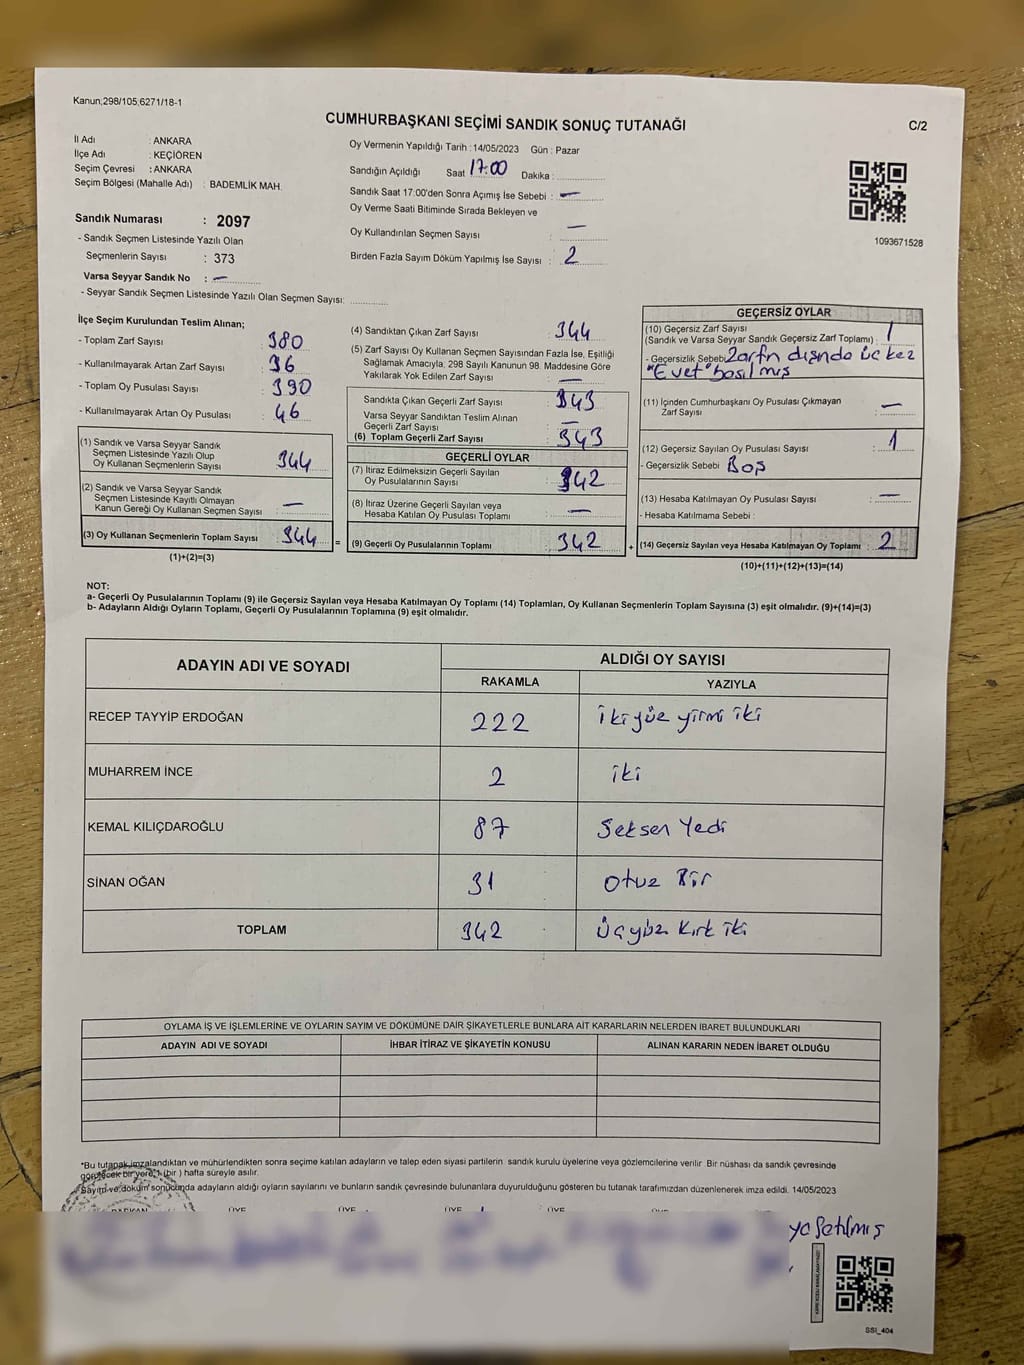 Kanun;298/105;6271/18-1
CUMHURBAŞKANI SEÇİMİ SANDIK SONUÇ TUTANAĞI
C/2
İl Adı : ANKARA
İlçe Adı : KEÇİÖREN
Seçim Çevresi : ANKARA
Seçim Bölgesi (Mahalle Adı) : BADEMLİK MAH.
Sandık Numarası : 2097
- Sandık Seçmen Listesinde Yazılı Olan
Seçmenlerin Sayısı : 373
Varsa Seyyar Sandık No : —
- Seyyar Sandık Seçmen Listesinde Yazılı Olan Seçmen Sayısı:
Oy Vermenin Yapıldığı Tarih : 14/05/2023 Gün : Pazar
Sandığın Açıldığı Saat 17:00 Dakika :
Sandık Saat 17.00'den Sonra Açımış İse Sebebi : —
Oy Verme Saati Bitiminde Sırada Bekleyen ve
Oy Kullandırılan Seçmen Sayısı : —
Birden Fazla Sayım Döküm Yapılmış İse Sayısı : 2
1093671528
İlçe Seçim Kurulundan Teslim Alınan;
- Toplam Zarf Sayısı : 380
- Kullanılmayarak Artan Zarf Sayısı : 36
- Toplam Oy Pusulası Sayısı : 390
- Kullanılmayarak Artan Oy Pusulası : 46
(1) Sandık ve Varsa Seyyar Sandık
Seçmen Listesinde Yazılı Olup
Oy Kullanan Seçmenlerin Sayısı : 344
(2) Sandık ve Varsa Seyyar Sandık
Seçmen Listesinde Kayıtlı Olmayan
Kanun Gereği Oy Kullanan Seçmen Sayısı : —
(3) Oy Kullanan Seçmenlerin Toplam Sayısı : 344
(1)+(2)=(3)
=
(4) Sandıktan Çıkan Zarf Sayısı : 344
(5) Zarf Sayısı Oy Kullanan Seçmen Sayısından Fazla İse, Eşitliği
Sağlamak Amacıyla; 298 Sayılı Kanunun 98. Maddesine Göre
Yakılarak Yok Edilen Zarf Sayısı : —
Sandıkta Çıkan Geçerli Zarf Sayısı : 343
Varsa Seyyar Sandıktan Teslim Alınan
Geçerli Zarf Sayısı : —
(6) Toplam Geçerli Zarf Sayısı : 343
GEÇERLİ OYLAR
(7) İtiraz Edilmeksizin Geçerli Sayılan
Oy Pusulalarının Sayısı : 342
(8) İtiraz Üzerine Geçerli Sayılan veya
Hesaba Katılan Oy Pusulası Toplamı : —
(9) Geçerli Oy Pusulalarının Toplamı : 342
+
GEÇERSİZ OYLAR
(10) Geçersiz Zarf Sayısı
(Sandık ve Varsa Seyyar Sandık Geçersiz Zarf Toplamı) : 1
- Geçersizlik Sebebi Zarfın dışında üç kez
"Evet" basılmış
(11) İçinden Cumhurbaşkanı Oy Pusulası Çıkmayan
Zarf Sayısı : —
(12) Geçersiz Sayılan Oy Pusulası Sayısı : 1
- Geçersizlik Sebebi Boş
(13) Hesaba Katılmayan Oy Pusulası Sayısı : —
- Hesaba Katılmama Sebebi :
(14) Geçersiz Sayılan veya Hesaba Katılmayan Oy Toplamı : 2
(10)+(11)+(12)+(13)=(14)
NOT:
a- Geçerli Oy Pusulalarının Toplamı (9) ile Geçersiz Sayılan veya Hesaba Katılmayan Oy Toplamı (14) Toplamları, Oy Kullanan Seçmenlerin Toplam Sayısına (3) eşit olmalıdır. (9)+(14)=(3)
b- Adayların Aldığı Oyların Toplamı, Geçerli Oy Pusulalarının Toplamına (9) eşit olmalıdır.
ADAYIN ADI VE SOYADI
ALDIĞI OY SAYISI
RAKAMLA YAZIYLA
RECEP TAYYİP ERDOĞAN 222 İkiyüz yirmi iki
MUHARREM İNCE 2 iki
KEMAL KILIÇDAROĞLU 87 Seksen Yedi
SİNAN OĞAN 31 Otuz Bir
TOPLAM 342 Üçyüz Kırk iki
OYLAMA İŞ VE İŞLEMLERİNE VE OYLARIN SAYIM VE DÖKÜMÜNE DAİR ŞİKAYETLERLE BUNLARA AİT KARARLARIN NELERDEN İBARET BULUNDUKLARI
ADAYIN ADI VE SOYADI İHBAR İTİRAZ VE ŞİKAYETİN KONUSU ALINAN KARARIN NEDEN İBARET OLDUĞU
*Bu tutanak imzalandıktan ve mühürlendikten sonra seçime katılan adayların ve talep eden siyasi partilerin sandık kurulu üyelerine veya gözlemcilerine verilir Bir nüshası da sandık çevresinde
görülecek bir yere, 1 (bir) hafta süreyle asılır.
Sayım ve döküm sonucunda adayların aldığı oyların sayılarını ve bunların sandık çevresinde bulunanlara duyurulduğunu gösteren bu tutanak tarafımızdan düzenlenerek imza edildi. 14/05/2023
BAŞKAN ÜYE ÜYE ÜYE ÜYE
SSİ_404